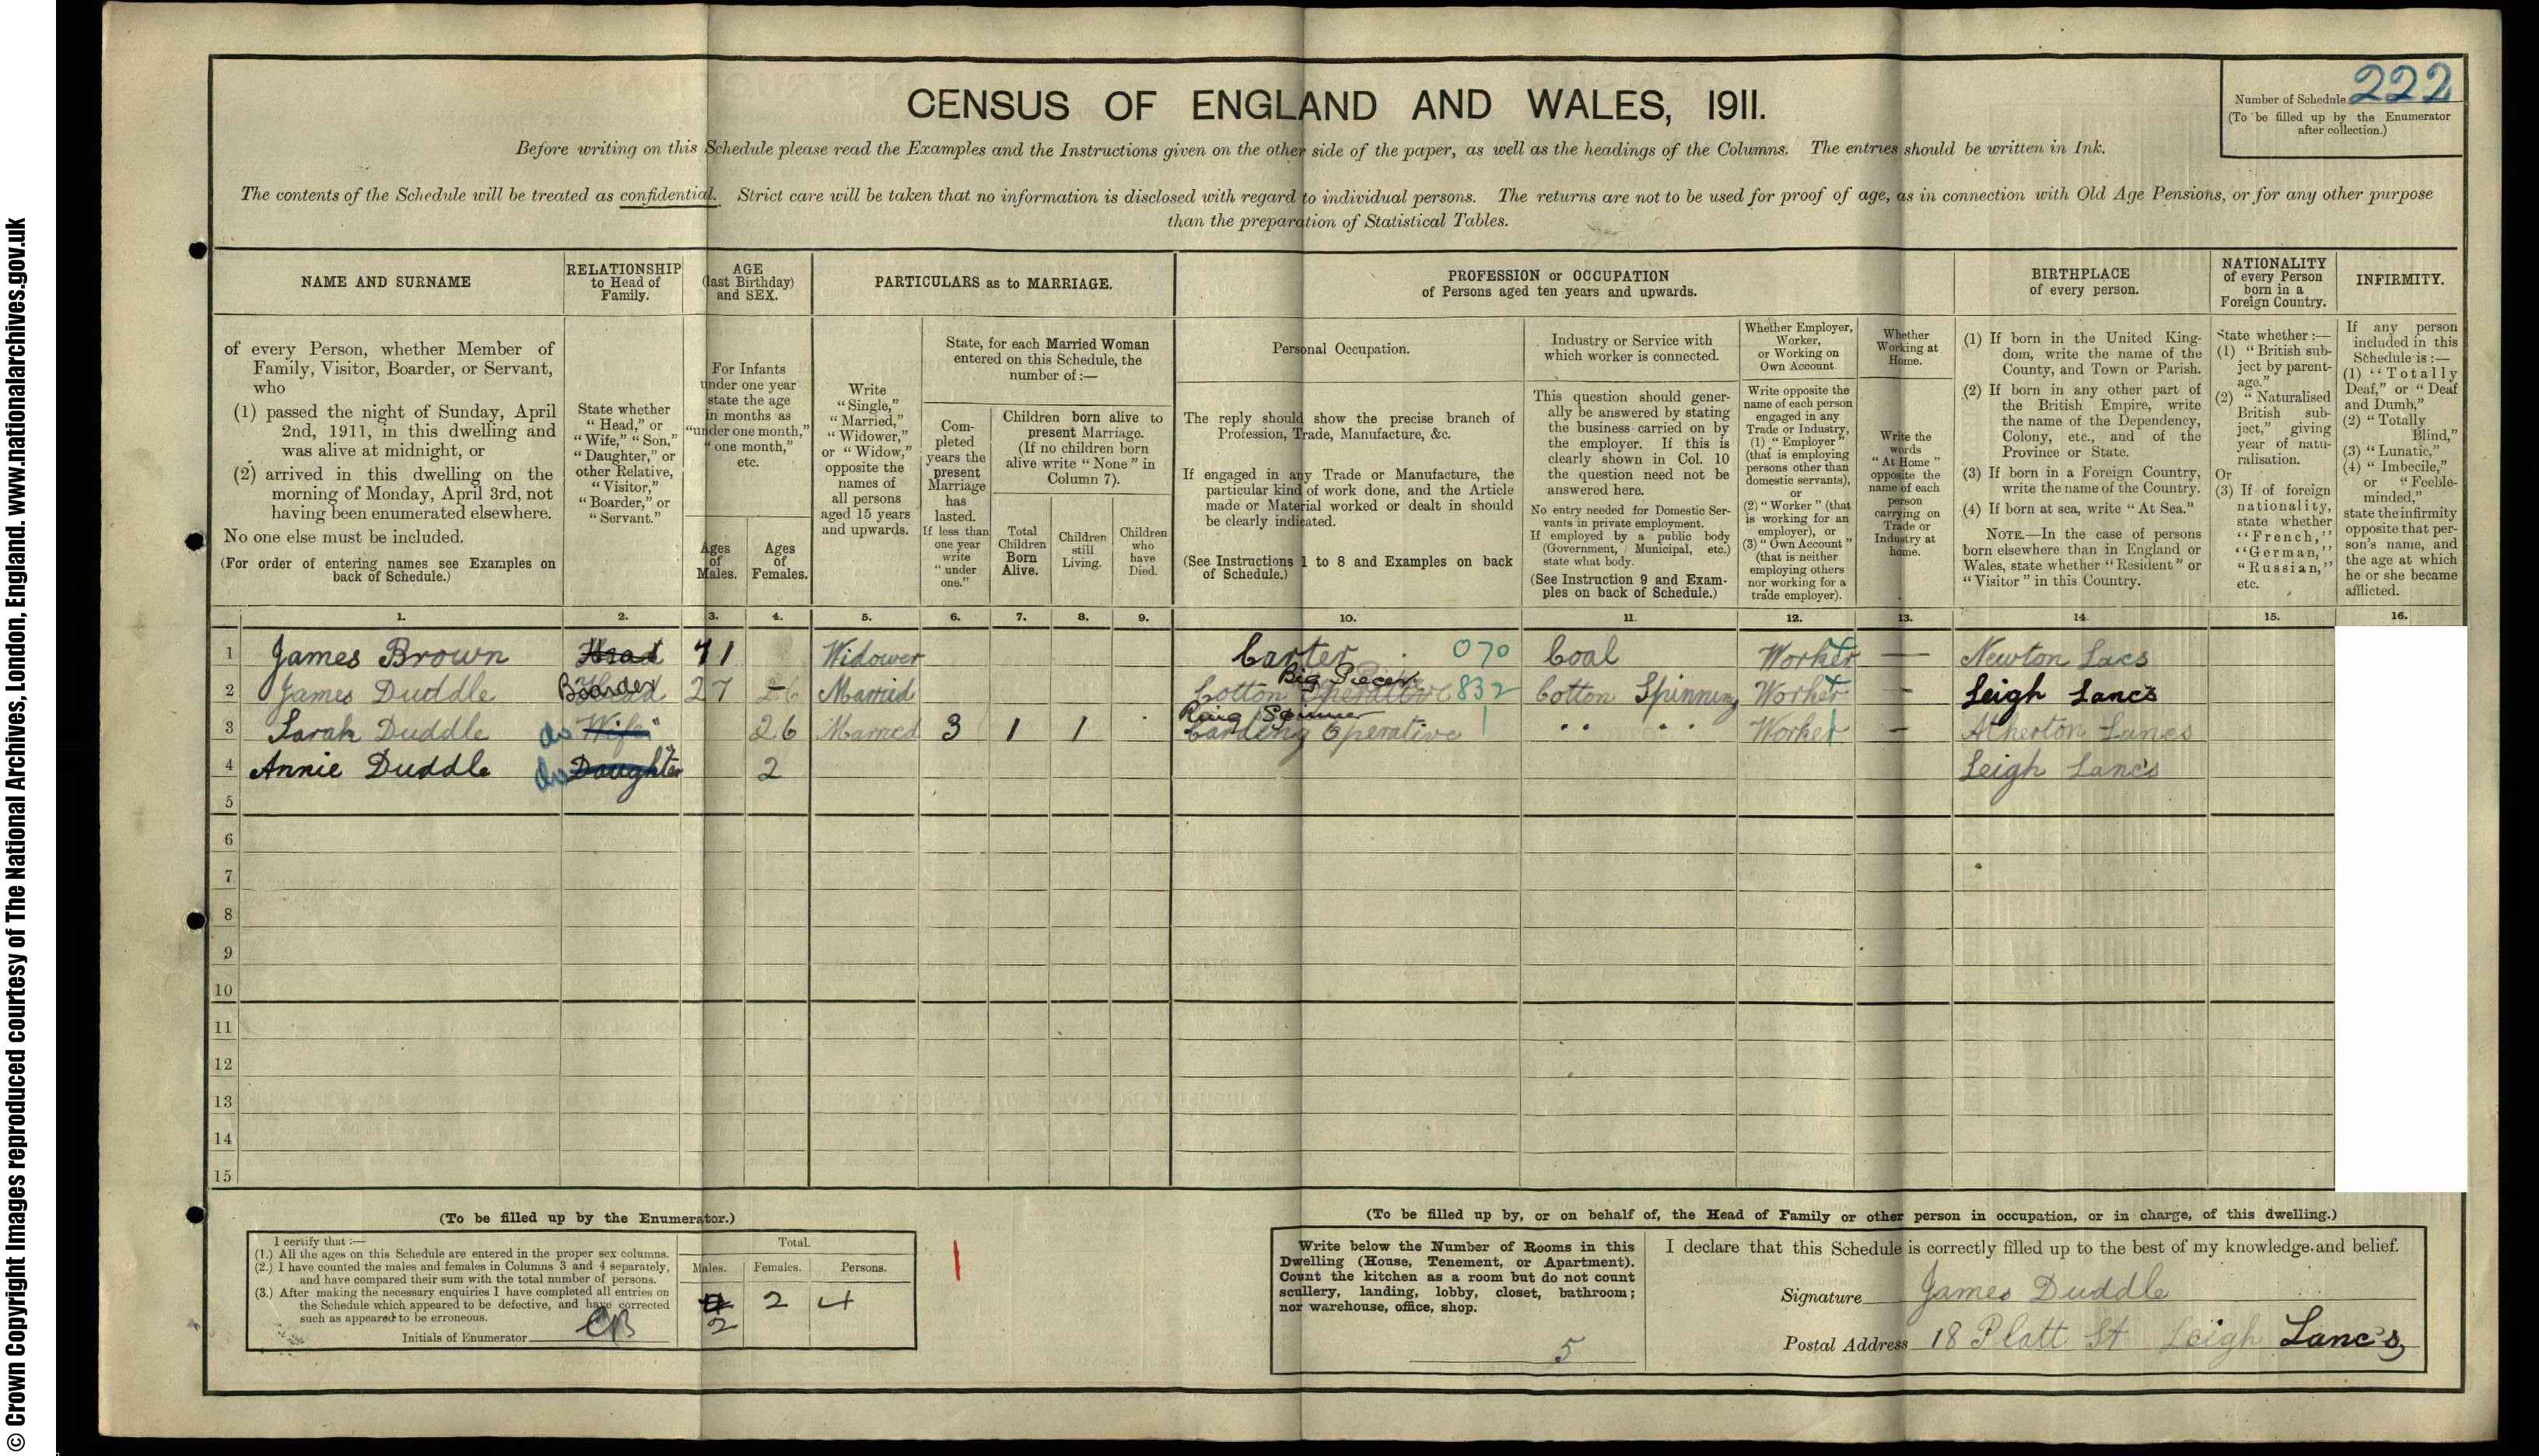 © Crown Copyright Images reproduced courtesy of The National Archives, London, England. www.nationalarchives.gov.uk
CENSUS OF ENGLAND AND WALES, 1911.
Number of Schedule 222
(To be filled up by the Enumerator
after collection.)
Before writing on this Schedule please read the Examples and the Instructions given on the other side of the paper, as well as the headings of the Columns. The entries should be written in Ink.
The contents of the Schedule will be treated as confidential. Strict care will be taken that no information is disclosed with regard to individual persons. The returns are not to be used for proof of age, as in connection with Old Age Pensions, or for any other purpose
than the preparation of Statistical Tables.
NAME AND SURNAME
of every Person, whether Member of
Family, Visitor, Boarder, or Servant,
who
(1) passed the night of Sunday, April
2nd, 1911, in this dwelling and
was alive at midnight, or
(2) arrived in this dwelling on the
morning of Monday, April 3rd, not
having been enumerated elsewhere.
No one else must be included.
(For order of entering names see Examples on
back of Schedule.)
RELATIONSHIP
to Head of
Family.
State whether
"Head," or
"Wife," "Son,"
"Daughter," or
other Relative,
"Visitor,"
"Boarder," or
"Servant."
AGE
(last Birthday)
and SEX.
For Infants
under one year
state the age
in months as
"under one month,"
"one month,"
etc.
Ages
of
Males.
Ages
of
Females.
PARTICULARS as to MARRIAGE.
Write
"Single,"
"Married,"
"Widower,"
or "Widow,"
opposite the
names of
all persons
aged 15 years
and upwards.
State, for each Married Woman
entered on this Schedule, the
number of :—
Com-
pleted
years the
present
Marriage
has
lasted.
If less than
one year
write
"under
one."
Children born alive to
present Marriage.
(If no children born
alive write "None" in
Column 7).
Total
Children
Born
Alive.
Children
still
Living.
Children
who
have
Died.
PROFESSION or OCCUPATION
of Persons aged ten years and upwards.
Personal Occupation.
The reply should show the precise branch of
Profession, Trade, Manufacture, &c.
If engaged in any Trade or Manufacture, the
particular kind of work done, and the Article
made or Material worked or dealt in should
be clearly indicated.
(See Instructions 1 to 8 and Examples on back
of Schedule.)
Industry or Service with
which worker is connected.
This question should gener-
ally be answered by stating
the business carried on by
the employer. If this is
clearly shown in Col. 10
the question need not be
answered here.
No entry needed for Domestic Ser-
vants in private employment.
If employed by a public body
(Government, Municipal, etc.)
state what body.
(See Instruction 9 and Exam-
ples on back of Schedule.)
Whether Employer,
Worker,
or Working on
Own Account.
Write opposite the
name of each person
engaged in any
Trade or Industry,
(1) "Employer"
(that is employing
persons other than
domestic servants),
or
(2) "Worker" (that
is working for an
employer), or
(3) "Own Account"
(that is neither
employing others
nor working for a
trade employer).
Whether
Working at
Home.
Write the
words
"At Home"
opposite the
name of each
person
carrying on
Trade or
Industry at
home.
BIRTHPLACE
of every person.
(1) If born in the United King-
dom, write the name of the
County, and Town or Parish.
(2) If born in any other part of
the British Empire, write
the name of the Dependency,
Colony, etc., and of the
Province or State.
(3) If born in a Foreign Country,
write the name of the Country.
(4) If born at sea, write "At Sea."
NOTE.—In the case of persons
born elsewhere than in England or
Wales, state whether "Resident" or
"Visitor" in this Country.
NATIONALITY
of every Person
born in a
Foreign Country.
State whether :—
(1) "British sub-
ject by parent-
age."
(2) "Naturalised
British sub-
ject," giving
year of natu-
ralisation.
Or
(3) If of foreign
nationality,
state whether
"French,"
"German,"
"Russian,"
etc.
INFIRMITY.
If any person
included in this
Schedule is :—
(1) "Totally
Deaf," or "Deaf
and Dumb,"
(2) "Totally
Blind,"
(3) "Lunatic,"
(4) "Imbecile,"
or "Feeble-
minded,"
state the infirmity
opposite that per-
son's name, and
the age at which
he or she became
afflicted.
1. 2. 3. 4. 5. 6. 7. 8. 9. 10. 11. 12. 13. 14. 15. 16.
1 James Brown Head 71 Widower Carter 070 Coal Worker — Newton Lacs
Big Piecer
2 James Duddle Boarder 27 Married Cotton Operative 832 Cotton Spinning Worker - Leigh Lancs
Ring Spinner
3 Sarah Duddle do Wife 26 Married 3 1 1 Carding Operative " " Worker - Atherton Lancs
4 Annie Duddle do Daughter 2 Leigh Lancs
5
6
7
8
9
10
11
12
13
14
15
(To be filled up by the Enumerator.)
I certify that :—
(1.) All the ages on this Schedule are entered in the proper sex columns.
(2.) I have counted the males and females in Columns 3 and 4 separately,
and have compared their sum with the total number of persons.
(3.) After making the necessary enquiries I have completed all entries on
the Schedule which appeared to be defective, and have corrected
such as appeared to be erroneous.
Initials of Enumerator
Total.
Males. Females. Persons.
2 2 4
(To be filled up by, or on behalf of, the Head of Family or other person in occupation, or in charge, of this dwelling.)
Write below the Number of Rooms in this
Dwelling (House, Tenement, or Apartment).
Count the kitchen as a room but do not count
scullery, landing, lobby, closet, bathroom;
nor warehouse, office, shop.
5
I declare that this Schedule is correctly filled up to the best of my knowledge and belief.
Signature James Duddle
Postal Address 18 Platt St Leigh Lancs